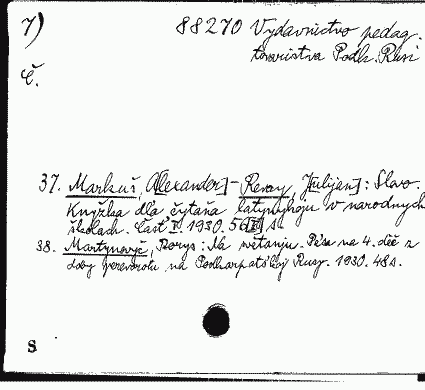 7) 88270 Vydavnictvo pedag.
tovaristva Podk. Rusi
č.
37. Markuš, A[lexander] - Revay, J[ulijan]: Slavo.
Knyžka dľa čytaňa latynyhoju v narodnych
školach. Časť I. 1930. 56 s.
38. Martynovyč, Borys: Na svitanju. Pěsa na 4. děě z
doby perevorotu na Podkarpatśkij Rusy. 1930. 48 s.
S